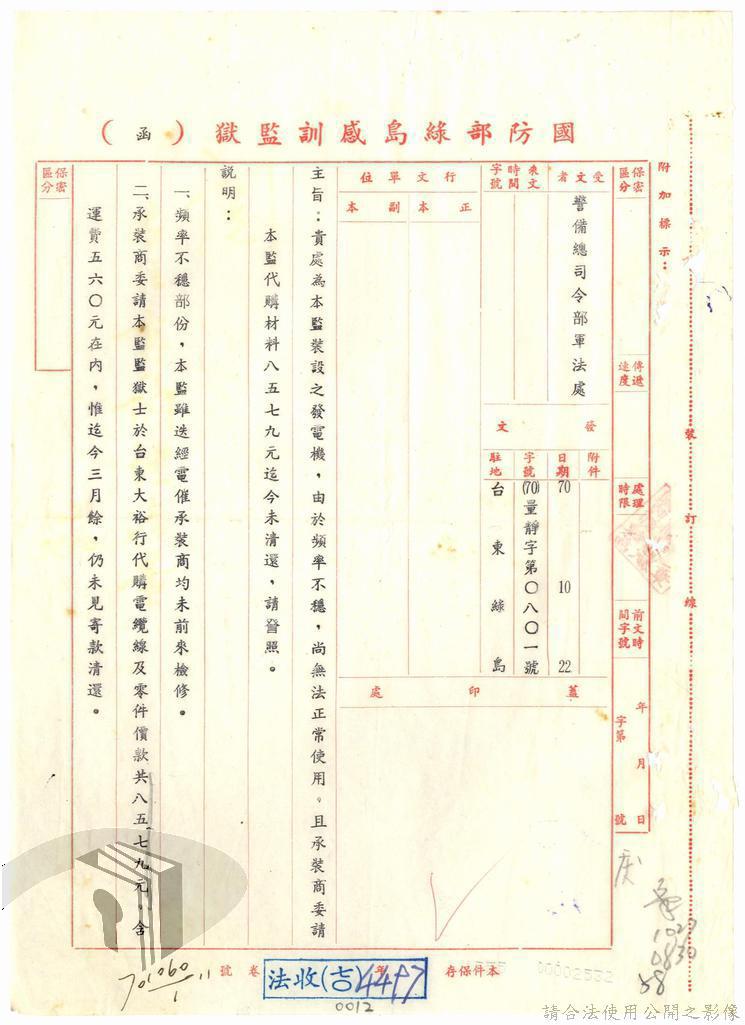 國防部綠島感訓監獄(函)
附加標示：
裝訂線
保密區分
傳遞速度
處理時限
前文時間字號
年月日
字第號
受文者
警備總司令部軍法處
來文時間字號
行文單位
正本
副本
發文
附件
日期
70 10 22
字號
(70)量靜字第〇八〇一號
駐地
台東綠島
蓋印處
主旨：貴處為本監裝設之發電機，由於頻率不穩，尚無法正常使用。且承裝商委請
本監代購材料八五七九元迄今未清還，請詧照。
說明：
一、頻率不穩部份，本監雖迭經電催承裝商均未前來檢修。
二、承裝商委請本監監獄士於台東大裕行代購電纜線及零件價款共八五七九元，含
運費五六〇元在內，惟迄今三月餘，仍未見寄款清還。
保密區分
本件保存 年 卷 號
00002532
法收(吉)4497
0012
1060
1
1029
0830
58
請合法使用公開之影像